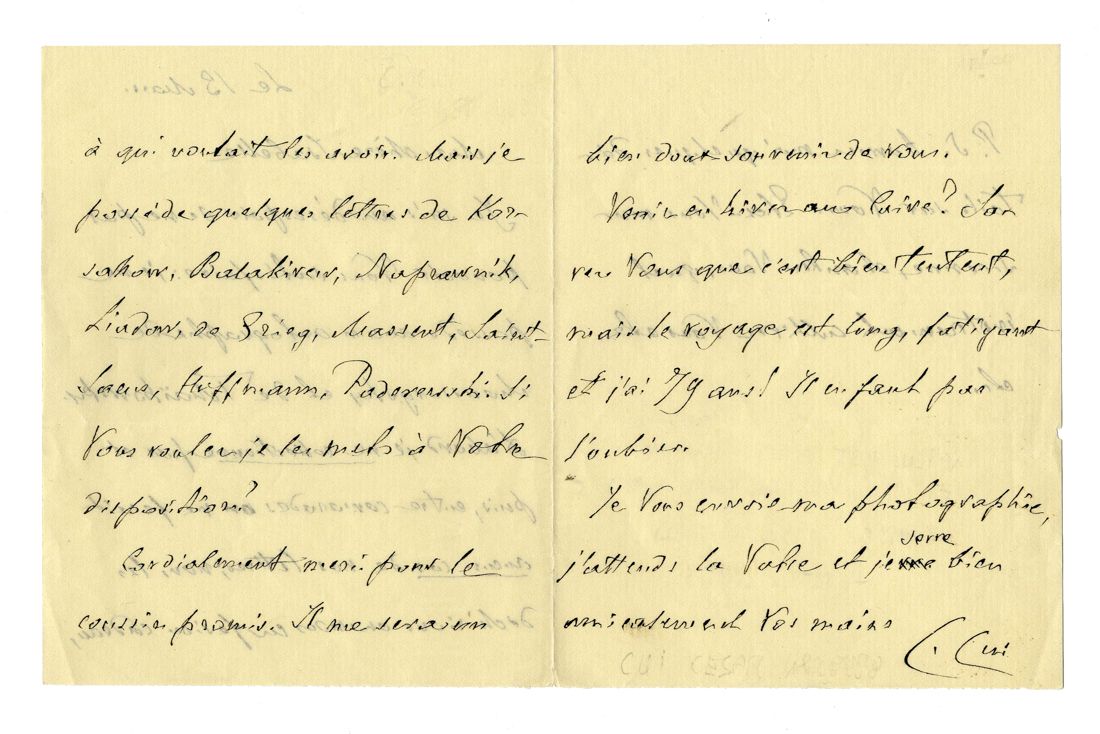 à qui voulait les avoir. Mais je
possède quelques lettres de Kor-
sakow, Balakirew, Naprawnik,
Liadow, de Grieg, Massent, Saint-
Saens, Hoffmann, Paderewski. Si
Vous voulez je les mets à Votre
disposition?
Cordialement merci pour le
coussin promis. Il me sera un
bien doux souvenir de Vous.
Venir en hiver au Caire? Sa-
vez Vous que c'est bien tentent,
mais le voyage est long, fatigant
et j'ai 79 ans! Il n'en faut pas
l'oublier.
Je Vous envoie ma photographie,
j'attends la Votre et je serre bien
amicalement Vos mains
C. Cui